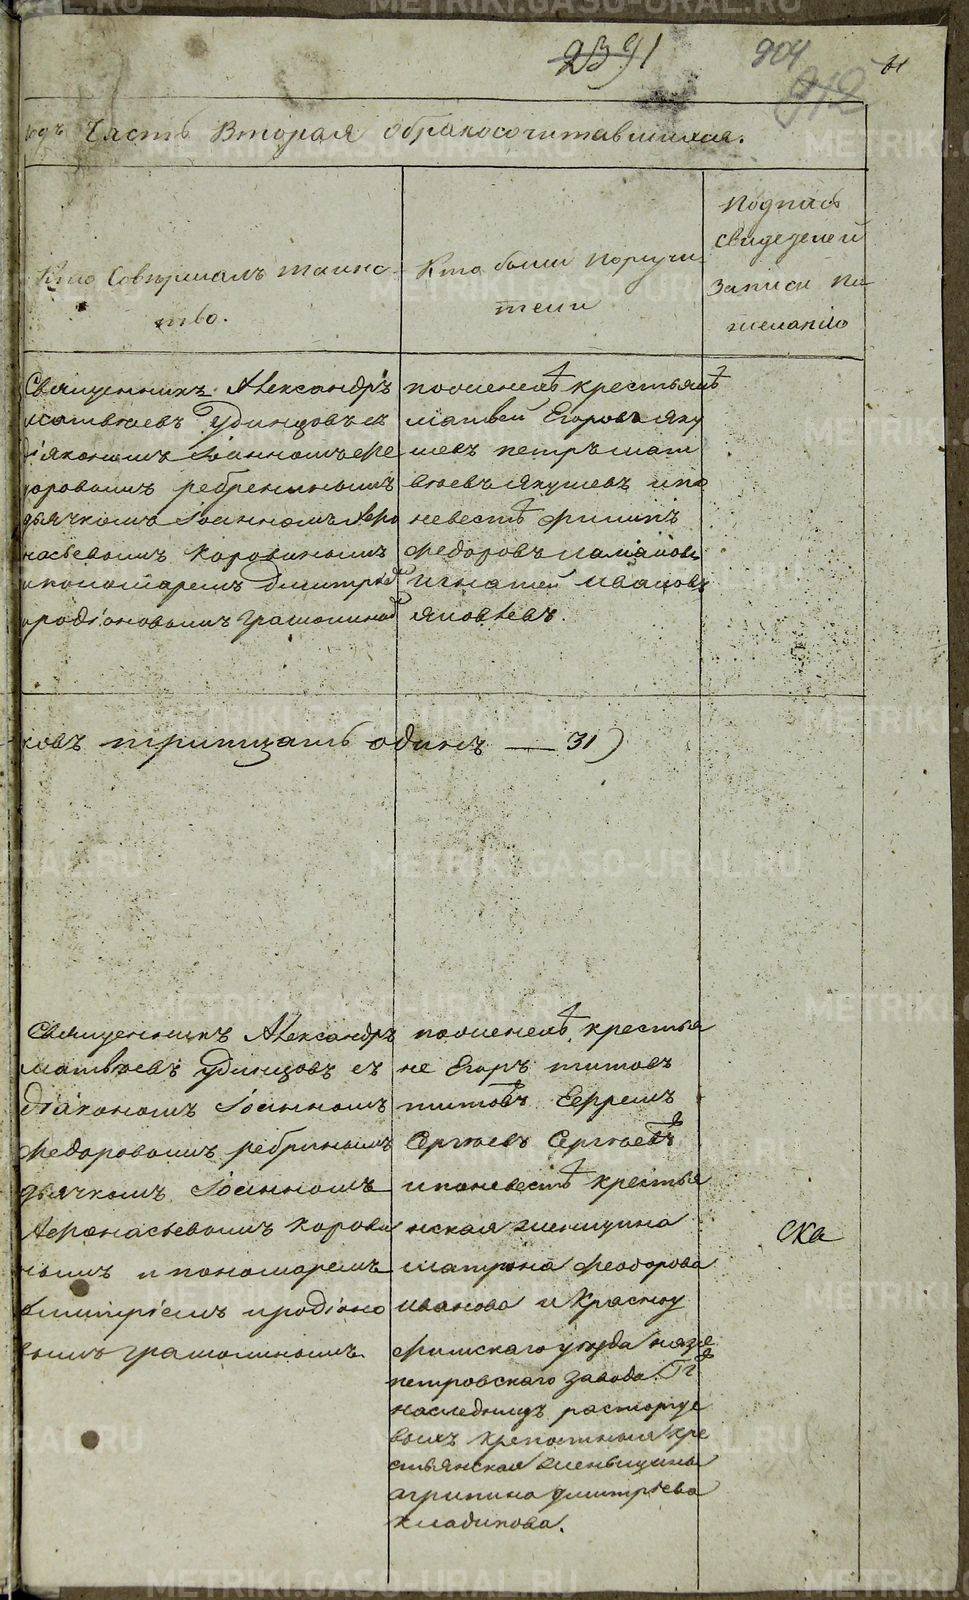 2391
904
912
61
годъ Часть Вторая обракосочитавшихся.
Кто Совершалъ таинс
тво.
Кто были поручи
тели
Подпись
свидетелей
записи по
желанію
Священникъ Александръ
матвѣевъ Удинцовъ съ
діякономъ Іоанномъ Фе
доровымъ ребренинымъ
дьячкомъ Іоанномъ Афо
насьевымъ Коровинымъ
и пономаремъ Дмитріе
иродіоновымъ
поженихѣ крестьянѣ
матвей Егоровъ Яку
шевъ петръ мат
веювъ Якушевъ ипо
невестѣ Филипъ
Федоровъ
Игнатей Ивановъ
Яковлевъ.
ковъ тритцать одинъ — 31)
Священникъ Александръ
матвѣевъ Удинцовъ съ
діакономъ Іоанномъ
Федоровымъ ребринымъ
дьячкомъ Іоанномъ
Афонасьевымъ Корови
нымъ и пономаремъ
Дмитріемъ иродіоно
вымъ
поженихѣ крестья
не Егоръ титовъ
титовъ Ефремъ
Сергѣевъ Сергѣевъ
и поневестѣ крестья
нская женщина
матрона Феодорова
иванова и Красноу
фимскаго уезда нязе
петровскаго завода Гг
наследницъ расторгуе
выхъ крепостная кре
стьянская женьщина
агрипина дмитріева
кладикова.
ска
METRIKI.GASO-URAL.RU